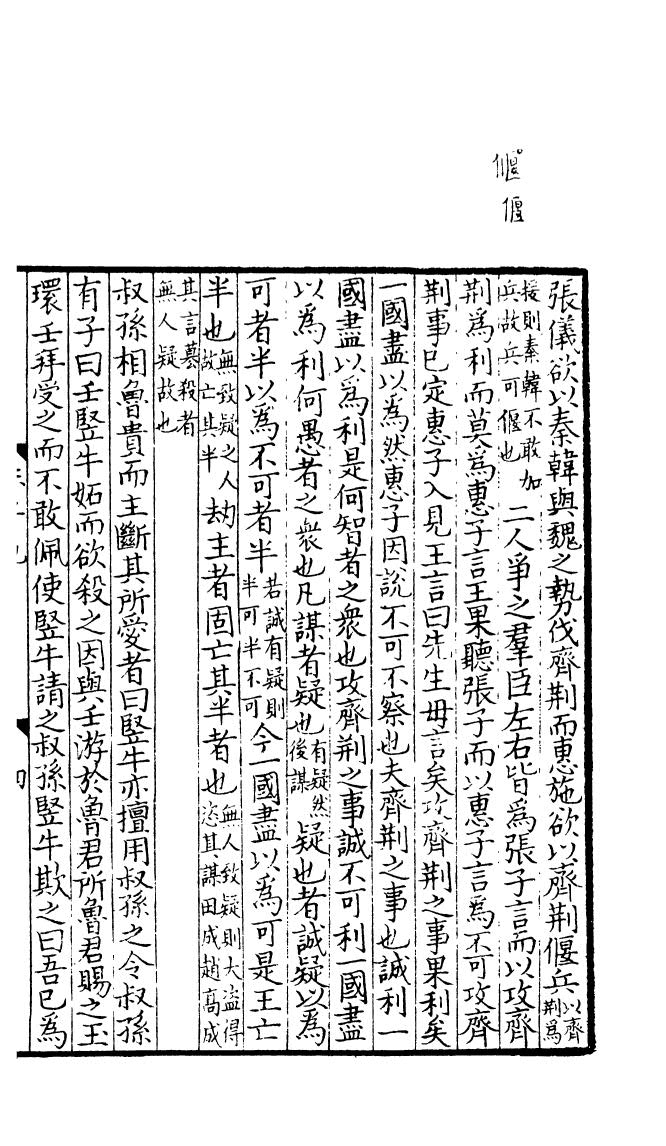 偃偃
張儀欲以秦韓與魏之勢伐齊荆而惠施欲以齊荆偃兵以齊荆爲
援則秦韓不敢加兵故兵可偃也二人爭之羣臣左右皆爲張子言而以攻齊
荆爲利而莫爲惠子言王果聽張子而以惠子言爲不可攻齊
荆事已定惠子入見王言曰先生毋言矣攻齊荆之事果利矣
一國盡以爲然惠子因說不可不察也夫齊荆之事也誠利一
國盡以爲利是何智者之衆也攻齊荆之事誠不可利一國盡
以爲利何愚者之衆也凡謀者疑也有疑然後謀疑也者誠疑以爲
可者半以爲不可者半若誠有疑則半可半不可今一國盡以爲可是王亡
半也無致疑之人故亡其半劫主者固亡其半者也無人致疑則大盜得恣其謀田成趙高成
其言墓殺者無人疑故也
叔孫相魯貴而主斷其所愛者曰竪牛亦擅用叔孫之令叔孫
有子曰壬竪牛妬而欲殺之因與壬游於魯君所魯君賜之玉
環壬拜受之而不敢佩使竪牛請之叔孫竪牛欺之曰吾已爲